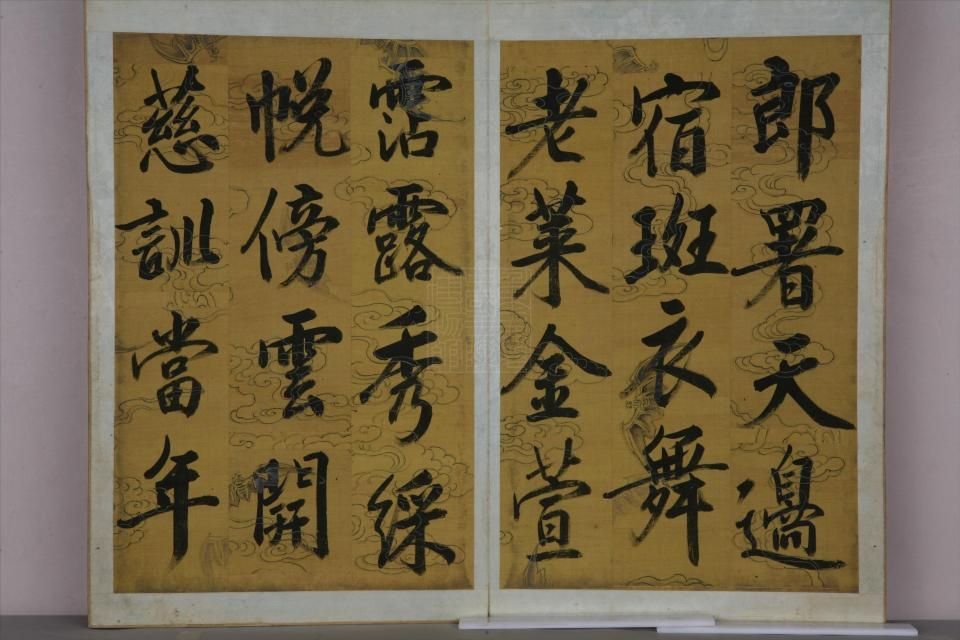 郎署天邊
宿斑衣舞
老萊金萱
霑露秀綵
帨傍雲開
慈訓當年